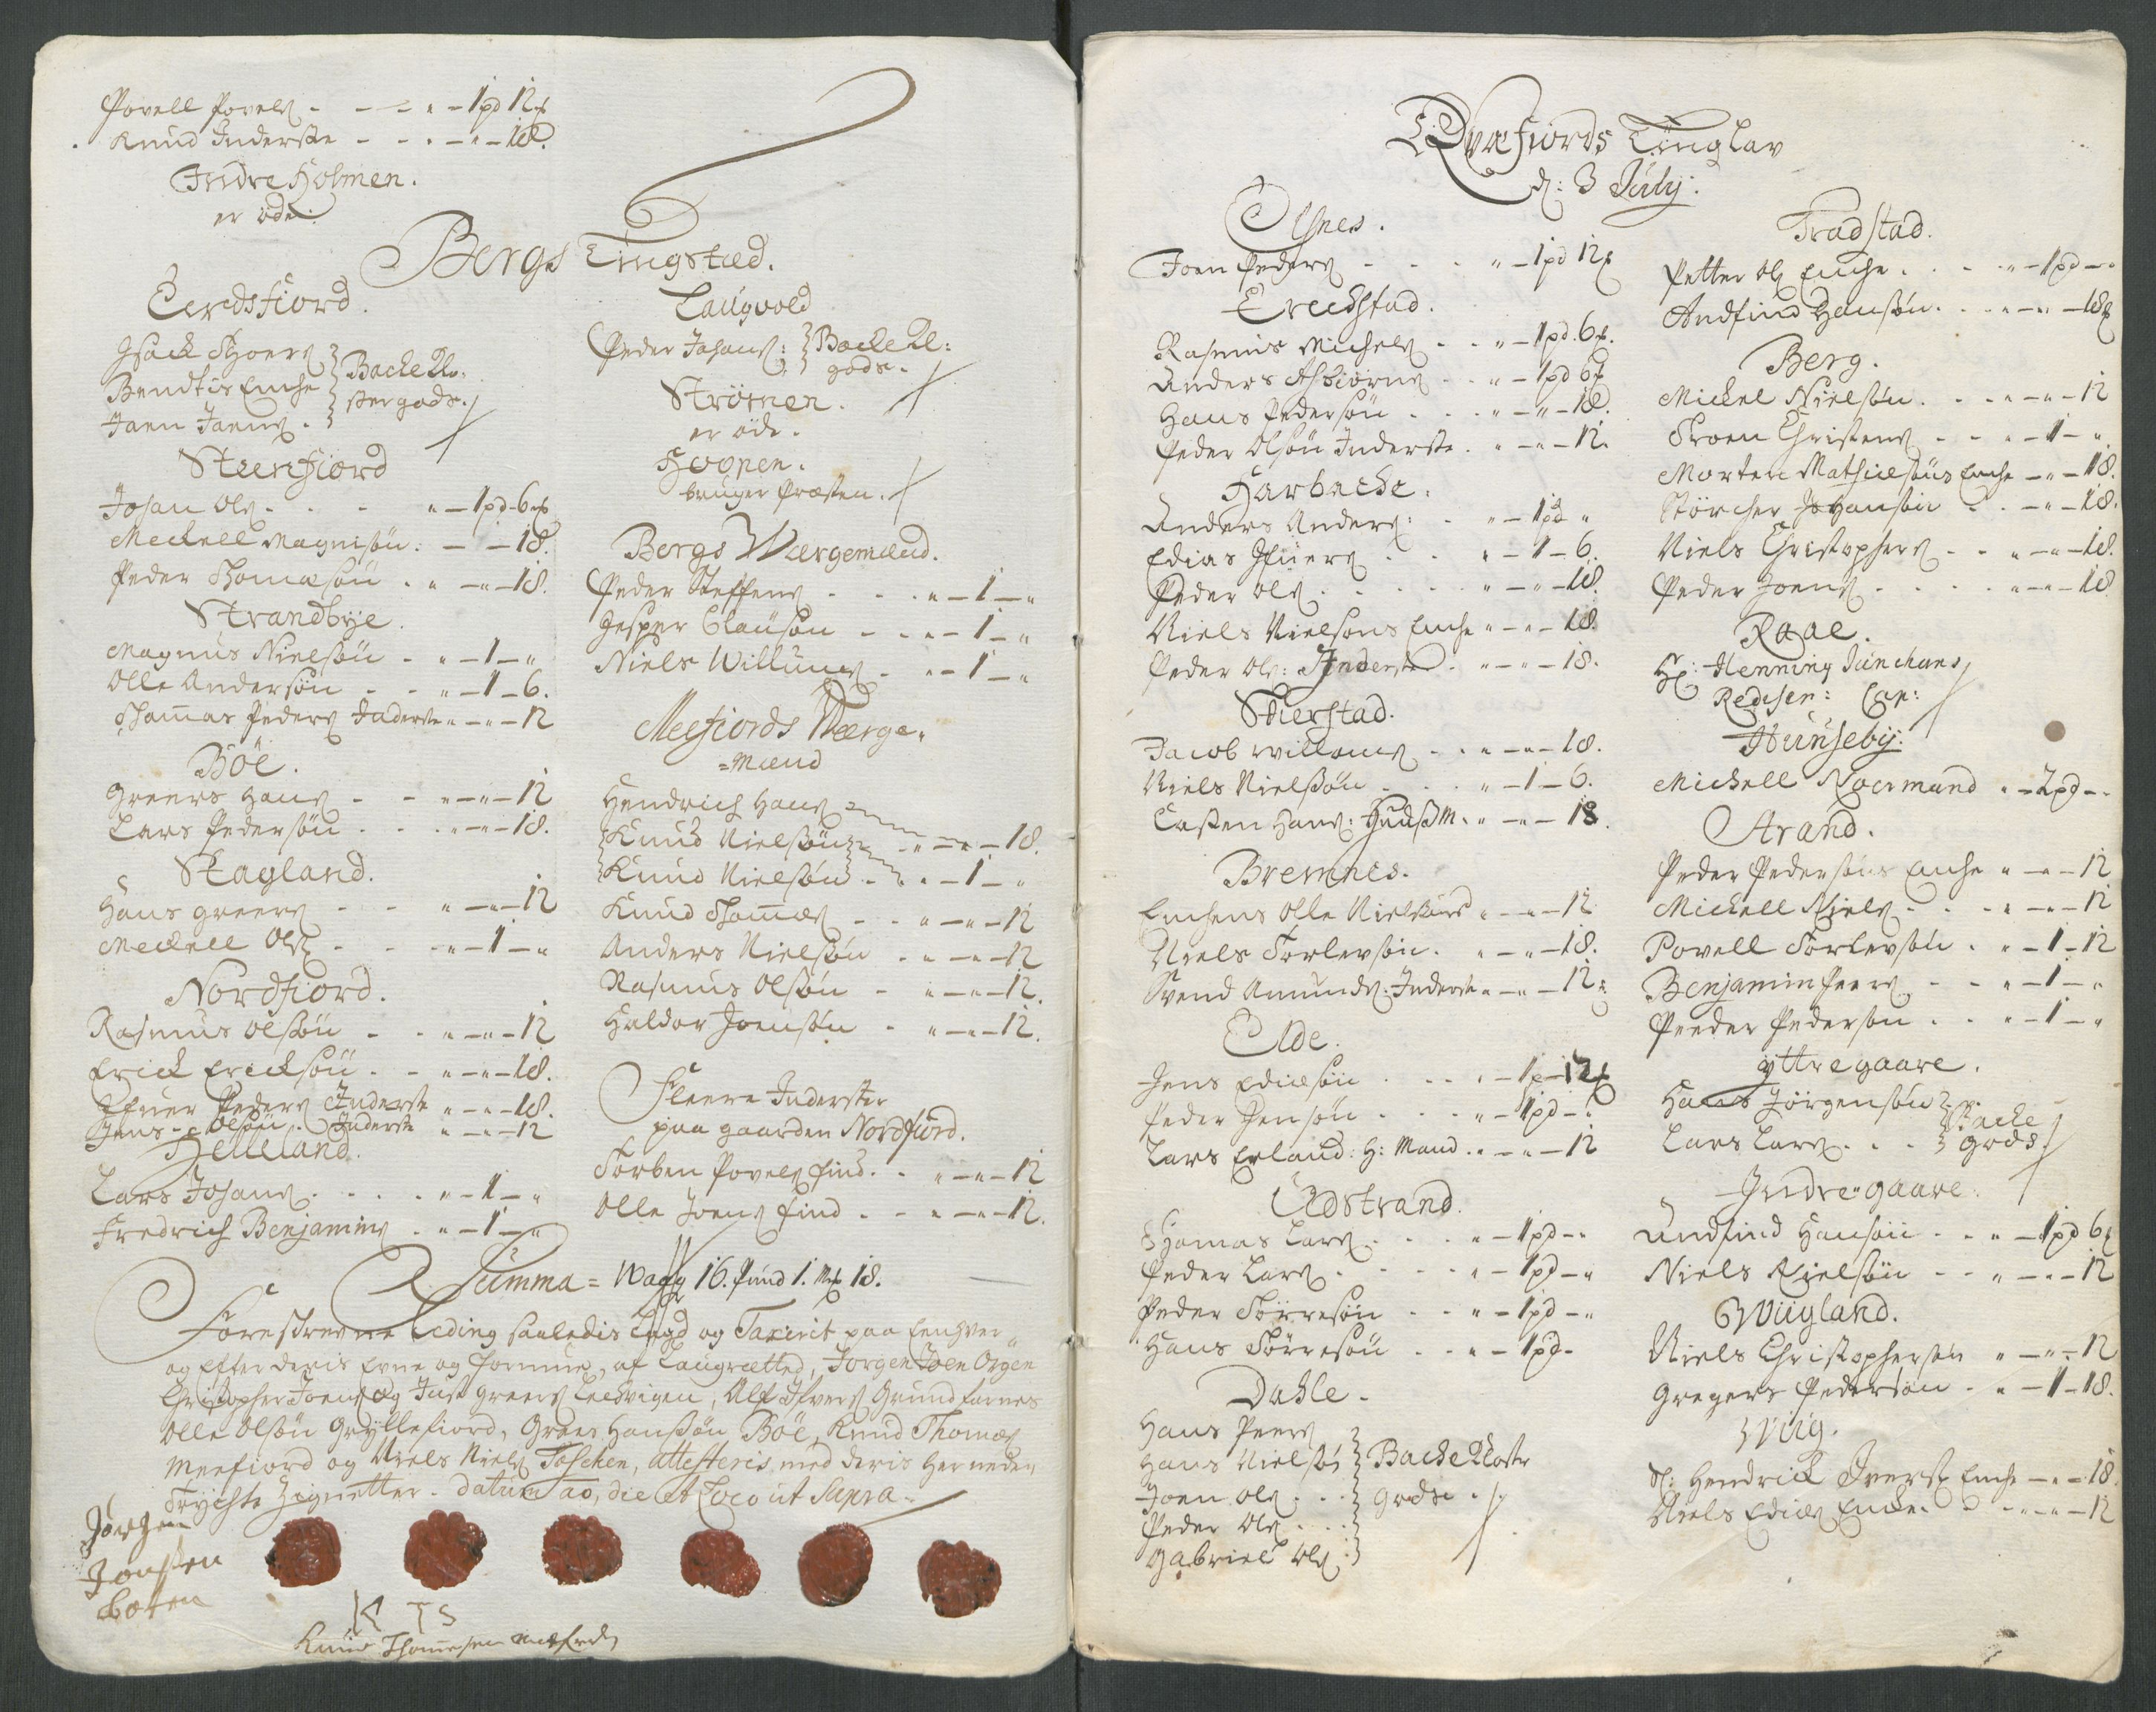 Povell Povels - - - " - 1 pd 12 mk
Knud Inderste - - - " - " - 18.
Indre Holmen.
er öde.
Bergs Tingstæd.
Eerdsfiord.
Isack Thoers
Bendtis Enche
Joen Joens.
Backe Klo:
stergods.
Steenfiord
Johan Ols. - - " - 1 pd - 6 mk
Meckell Magnisön. - - 18.
Peder Thomæsön - " - " - 18.
Strandbye.
Magnus Nielsön - " - 1 - "
Olle Andersön - - " - 1 - 6.
Thommas Peders Inderste " - " - 12
Böe.
Greers Hans - - " - " - 12
Lars Pedersön - - " - " - 18.
Skagland.
Hans Greers - - " - " - 12
Meckell Ols - - " - 1 - "
Nordfiord.
Rasmus Olsön - - " - " - 12
Erick Ericksön - - " - " - 18.
Ifuer Peders Inderste " - " - 18.
Jens Olsön. Inderste " - " - 12
Helleland.
Lars Johans - - - " - 1 - "
Fredrich Benjamins - " - 1 - "
Laugvold
Peder Johans: Backe Kl:
gods.
Strömen.
er öde.
Hoopen.
bruger Præsten.
Bergs Wærgemænd.
Peder Steffens - - " - 1 - "
Jesper Clausön - - " - 1 - "
Niels Willums - " - 1 - "
Meefiords Wærge-
=Mænd
Hendrich Hans
Knud Nielsön - " - " - 18.
Knud Nielsön - " - 1 - "
Knud Thommæs - - " - " - 12
Anders Nielsön - " - " - 12
Rasmus Olsön - " - " - 12.
Haldor Joensön - " - " - 12.
Fleere Inderster
paa gaarden Nordfiord.
Torben Povels find. - " - " - 12
Olle Joens find - - " - " - 12.
Summa = Wog 16. Pund 1. Mk 18.
Foreskrevne Leding saaledis Lagd og Taxerit paa Eenhver
og Efter deris Evne og Formue, af Laugrætted, Jörgen Joen Örgen
Christopher Joens og Just Greers Leedvigen, Alf Ifvers Grundfarnes
Olle Olsön Gryllefiord, Greers Hansön Böe, Knud Thomæs
Meefiord og Niels Niels Toschen, attesteris med deris her neden
Trychte Zignetter. Datum ao, die et Loco ut Supra.
Jörgen
Jonssen
K T S
Knud Thommesen Mefiord
Qvæfiords Tinglav
d: 3 July.
Elsnes.
Joen Peders - - - " - 1 pd 12 mk
Ereckstad.
Rasmus Michels - - " - 1 pd. 6 mk.
Anders Asbiörns - - " - 1 pd 6 mk
Hans Pedersön - - " - " - 18.
Peder Olsön Inderste. " - " - 12.
Harbache.
Anders Anders: - " - 1 pd "
Edias Ifuers - - " - 1 - 6.
Peder Ols - - - " - " - 18.
Niels Nielsöns Enche " - " - 18.
Peder Ols: Inderste. " - " - 18.
Skierstad.
Jacob Willoms - - " - " - 18.
Niels Nielsön - - " - 1 - 6.
Casten Hans: Huusm. " - " - 18.
Bremnes.
Enchens Olle Nielsöns " - " - 12
Niels Torlevsön. " - " - 18.
Svend Amunds: Inderste " - " - 12:
Elde.
Jens Ediæsön - - " - 1 p - 12 mk
Peder Jensön - - " - 1 pd - "
Lars Erland: H: Mand. " - " - 12
Udstrand.
Thomas Lars - - " - 1 pd - "
Peder Lars - - " - 1 pd - "
Peder Törresön - - " - 1 pd - "
Hans Törresön - - " - 1 pd -
Dahle.
Hans Peers
Hans Nielsön
Joen Ols.
Peder Ols
Gabriel Ols
Backe Kloster
Gods.
Fradstad.
Petter Ols Enche - - " - 1 pd - "
Andfind Hansön. - " - " - 18 mk
Berg.
Mickel Nielsön - - " - " - 12
Troen Christens - - " - 1 - "
Morten Mathiæsöns Enche - " - 18.
Störcher Johansön - - " - 18.
Niels Christophers - - " - " - 18.
Peder Joens - - - " - " - 18
Raae.
Hr: Henning Junchans
Redisen: Cap:
Hunseby.
Mickell Noermand " - 2 pd - "
Strand.
Peder Pedersöns Enche " - " - 12
Mickell Niels - - " - " - 12
Povell Torlevsön. " - 1 - 12
Benjamin Peers - " - 1 - "
Peeder Pedersön - " - 1 - "
yttregaare.
Hans Jörgensön
Lars Lars
Backe
Gods.
Indregaare.
Andfind Hansön - " - 1 pd 6 mk
Niels Nielsön - " - " - 12
Wiigland.
Niels Christophersen " - " - 12
Gregers Pedersön - " - 1 - 18.
Wiig.
Sl: Hendrick Ivers Enche - " - 18.
Niels Ediæs Enche - " - " - 12